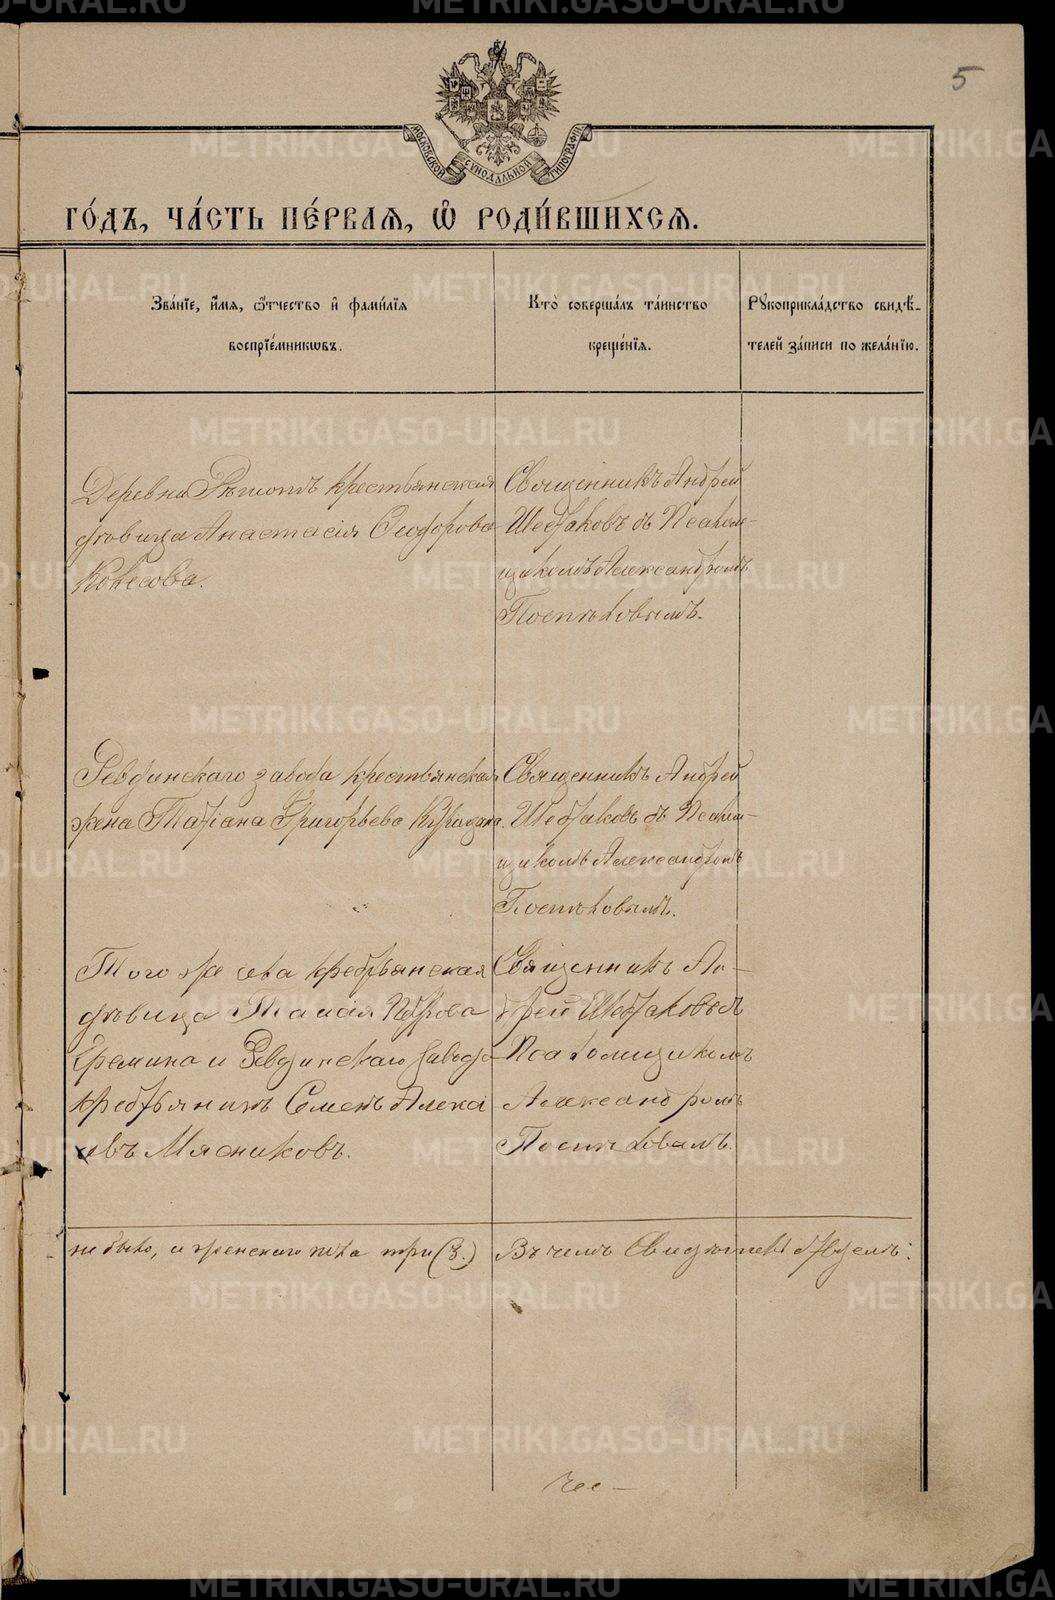 5
МОСКОВСКОЙ СѴНОДАЛЬНОЙ ТИПОГРАФІИ
ГО́ДЪ, ЧА́СТЬ ПЕ́РВАЯ, Ѽ РОДИ́ВШИХСЯ.
Зва́нїе, и҆́мѧ, ѻ҆́тчество и҆ фами́лїѧ
воспрїе́мникѡвъ.
Кто̀ соверша́лъ та́инство
креще́нїѧ.
Рꙋкоприкла́дство свидѣ́-
телей за́писи по жела́нїю.
Деревни крестьянская
дѣвица Анастасія Ѳеодорова
Священникъ Андрей
съ Псалом-
щикомъ Александромъ
Поспѣловымъ.
Ревдинскаго завода крестьянская
жена Татіана Григорьева
Священникъ Андрей
съ Псалом-
щикомъ Александромъ
Поспѣловымъ.
Того же села крестьянская
дѣвица Таисія Петрова
Еремина и Ревдинскаго завода
крестьянинъ Семенъ Алекс
Мясниковъ.
Священникъ Ан-
дрей съ
Псаломщикомъ
Александромъ
Поспѣловымъ.
не было, и женскаго пола три (3.)
Въ чемъ
METRIKI.GASO-URAL.RU